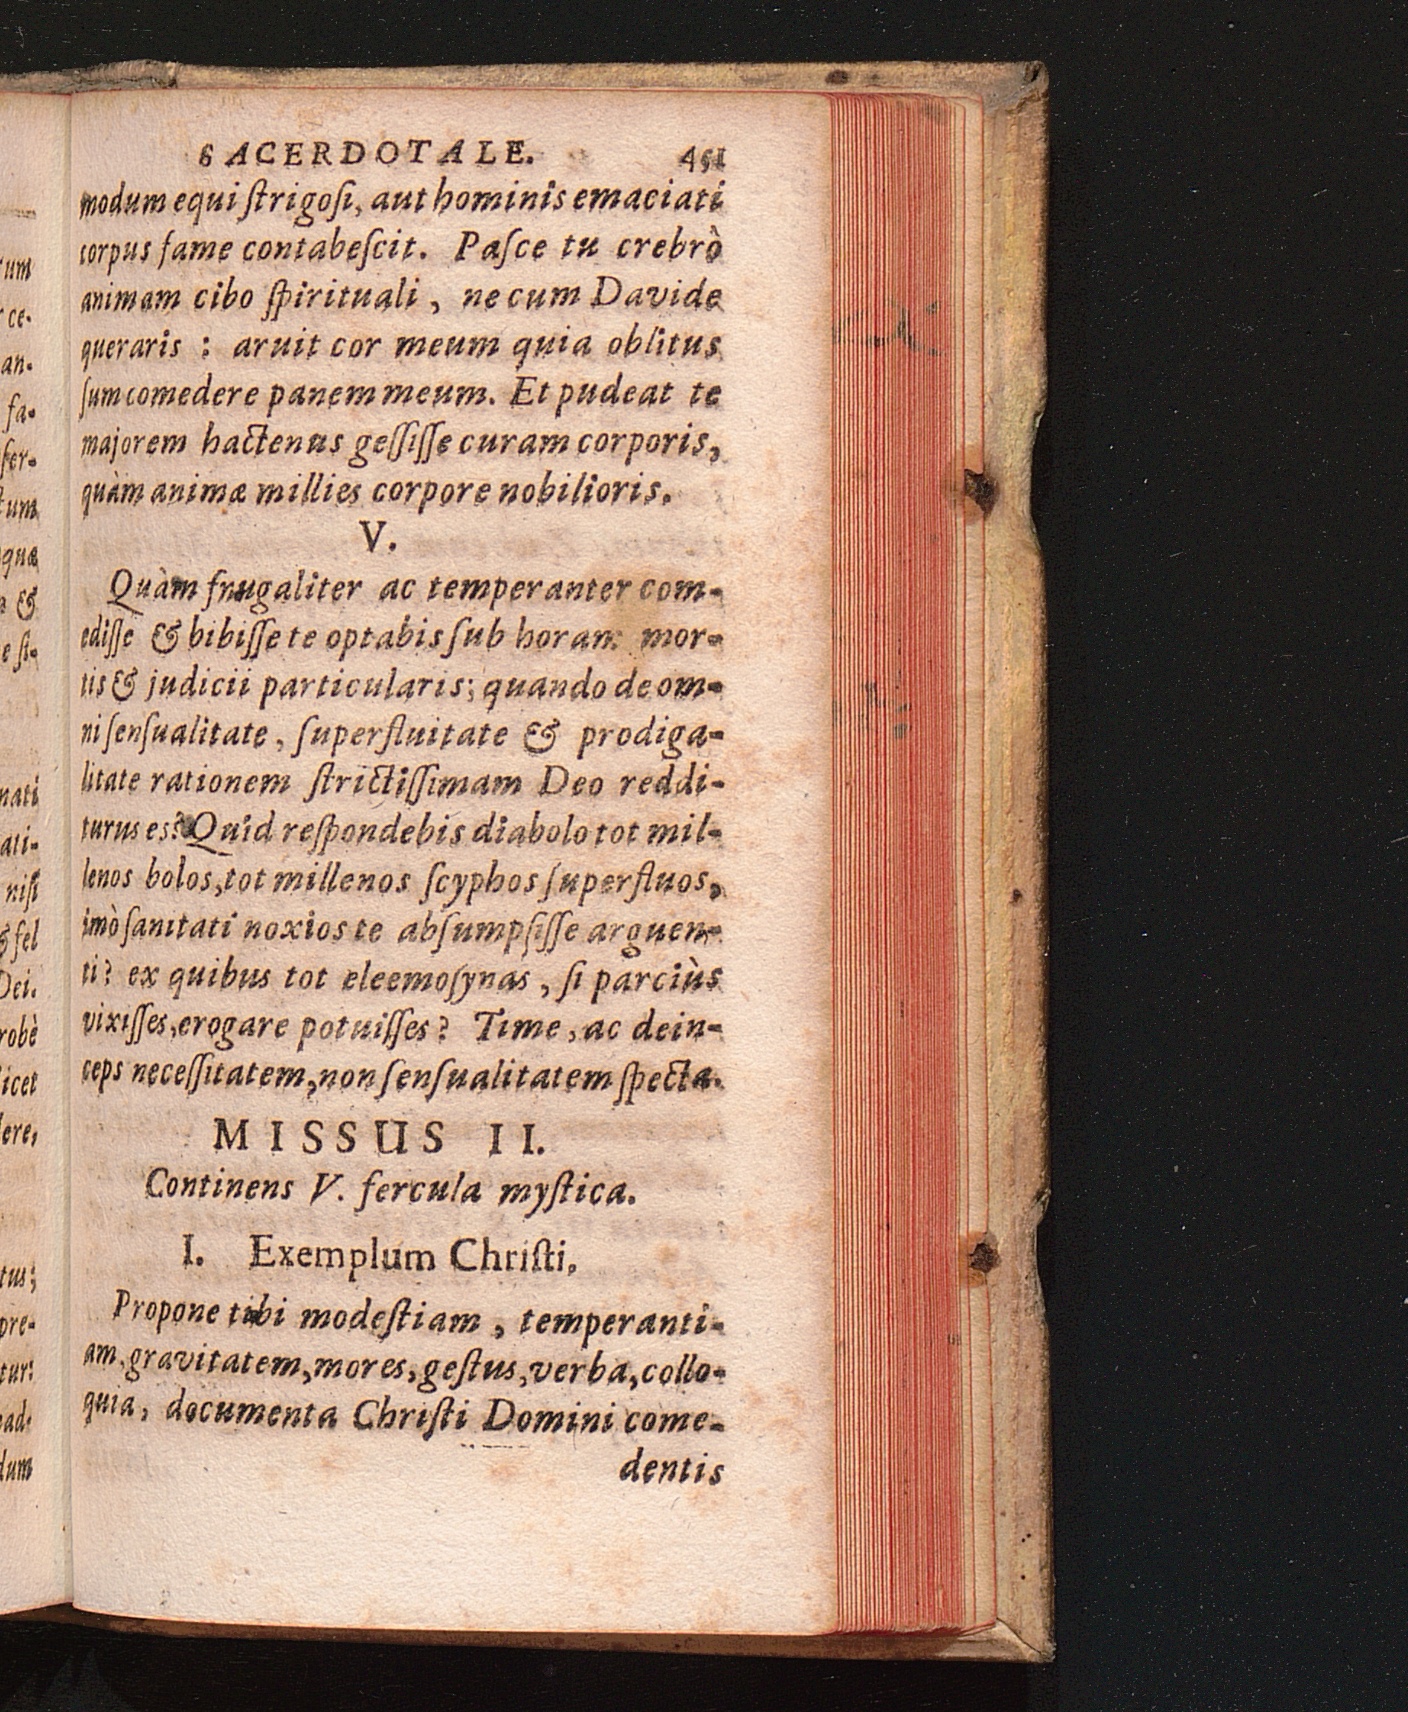 SACERDOTALE. 451
modum equi ſtrigoſi, aut hominis emaciati
corpus fame contabeſcit. Paſce tu crebrò
animam cibo ſpirituali, ne cum Davide
queraris : aruit cor meum quia oblitus
ſum comedere panem meum. Et pudeat te
majorem hactenus geſſiſſe curam corporis,
quàm animæ millies corpore nobilioris.
V.
Quàm frugaliter ac temperanter com-
ediſſe & bibiſſe te optabis ſub horam mor-
tis & judicii particularis; quando de om-
ni ſenſualitate, ſuperfluitate & prodiga-
litate rationem ſtrictiſſimam Deo reddi-
turus es? Quid reſpondebis diabolo tot mil-
lenos bolos, tot millenos ſcyphos ſuperfluos,
imò ſanitati noxios te abſumpſiſſe arguen-
ti? ex quibus tot eleemoſynas, ſi parciùs
vixiſſes, erogare potuiſſes? Time, ac dein-
ceps neceſſitatem, non ſenſualitatem ſpecta.
MISSUS II.
Continens V. fercula myſtica.
I. Exemplum Chriſti.
Propone tibi modeſtiam, temperanti-
am, gravitatem, mores, geſtus, verba, collo-
quia, documenta Chriſti Domini come-
dentis